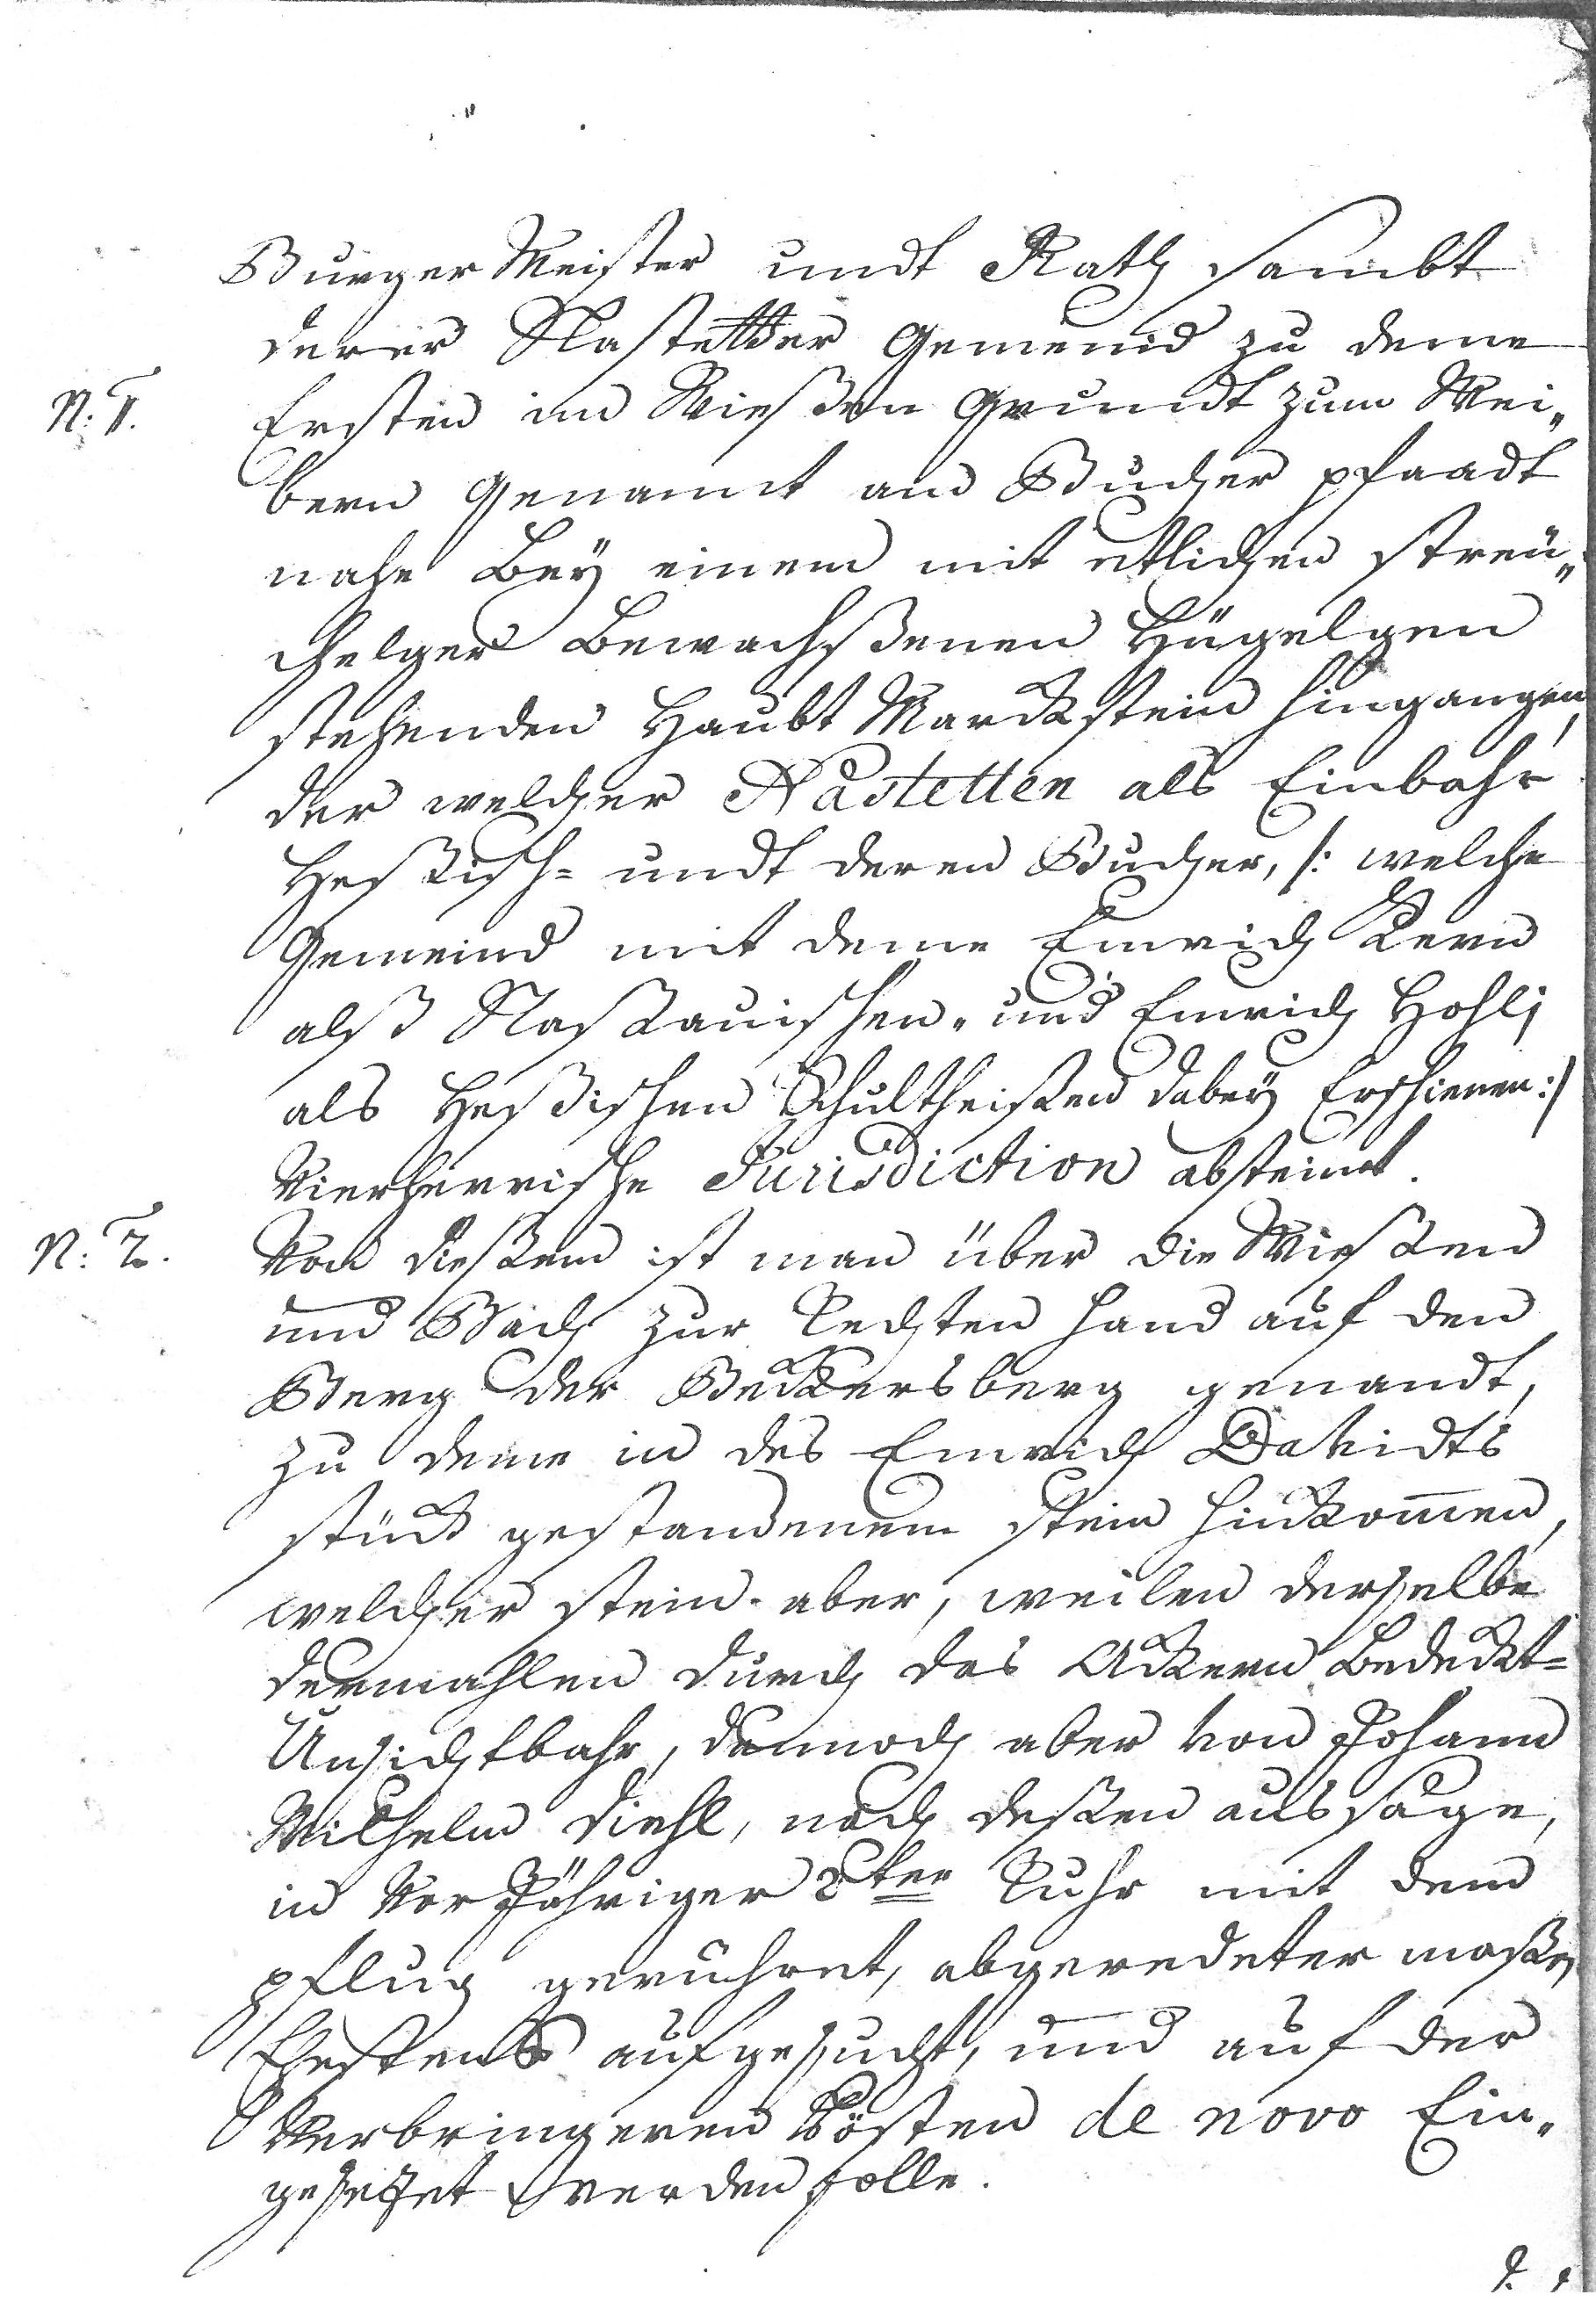 Burger Meister undt Rath sambt
derer Nastetter Gemeind zu deme
N: 1. Ersten im Wießen Grundt zum Wei„
bern Genannt am Bucher pfaadt
nahe Bey einem mit etlichen streü„
chelger Bewachßenen Hügelgen
stehenden Haubt Marckstein hingangen,
der welcher Nastetten als Einbahr
Heßisch= undt deren Bucher, /: welche
Gemeind mit deme Emrich Kern
alß Naßauischen„ und Emrich Hohl
als Heßischen Schultheißen dabey Erschienen :/
Vierherrische Jurisdiction absteint.
N: 2. Von dießem ist man über die Wießen
und Bach zur Rechten hand auf den
Berg der Beckersberg genandt,
zu deme in des Emrich Davidts
stück gestandenem stein hinkommen,
welcher stein aber, weilen derselbe
dermahlen durch das Ackern Bedeckt=
Unsichtbahr, dennoch aber von Johann
Wilhelm Diehl, nach deßen aussage,
in Vor Jähriger 2ter Ruhr mit dem
pflug gerühret, abgeredeter maßen
Ehestens aufgesucht, und auf der
Verbringeren Kösten de novo Ein„
gesetzet werden solle.